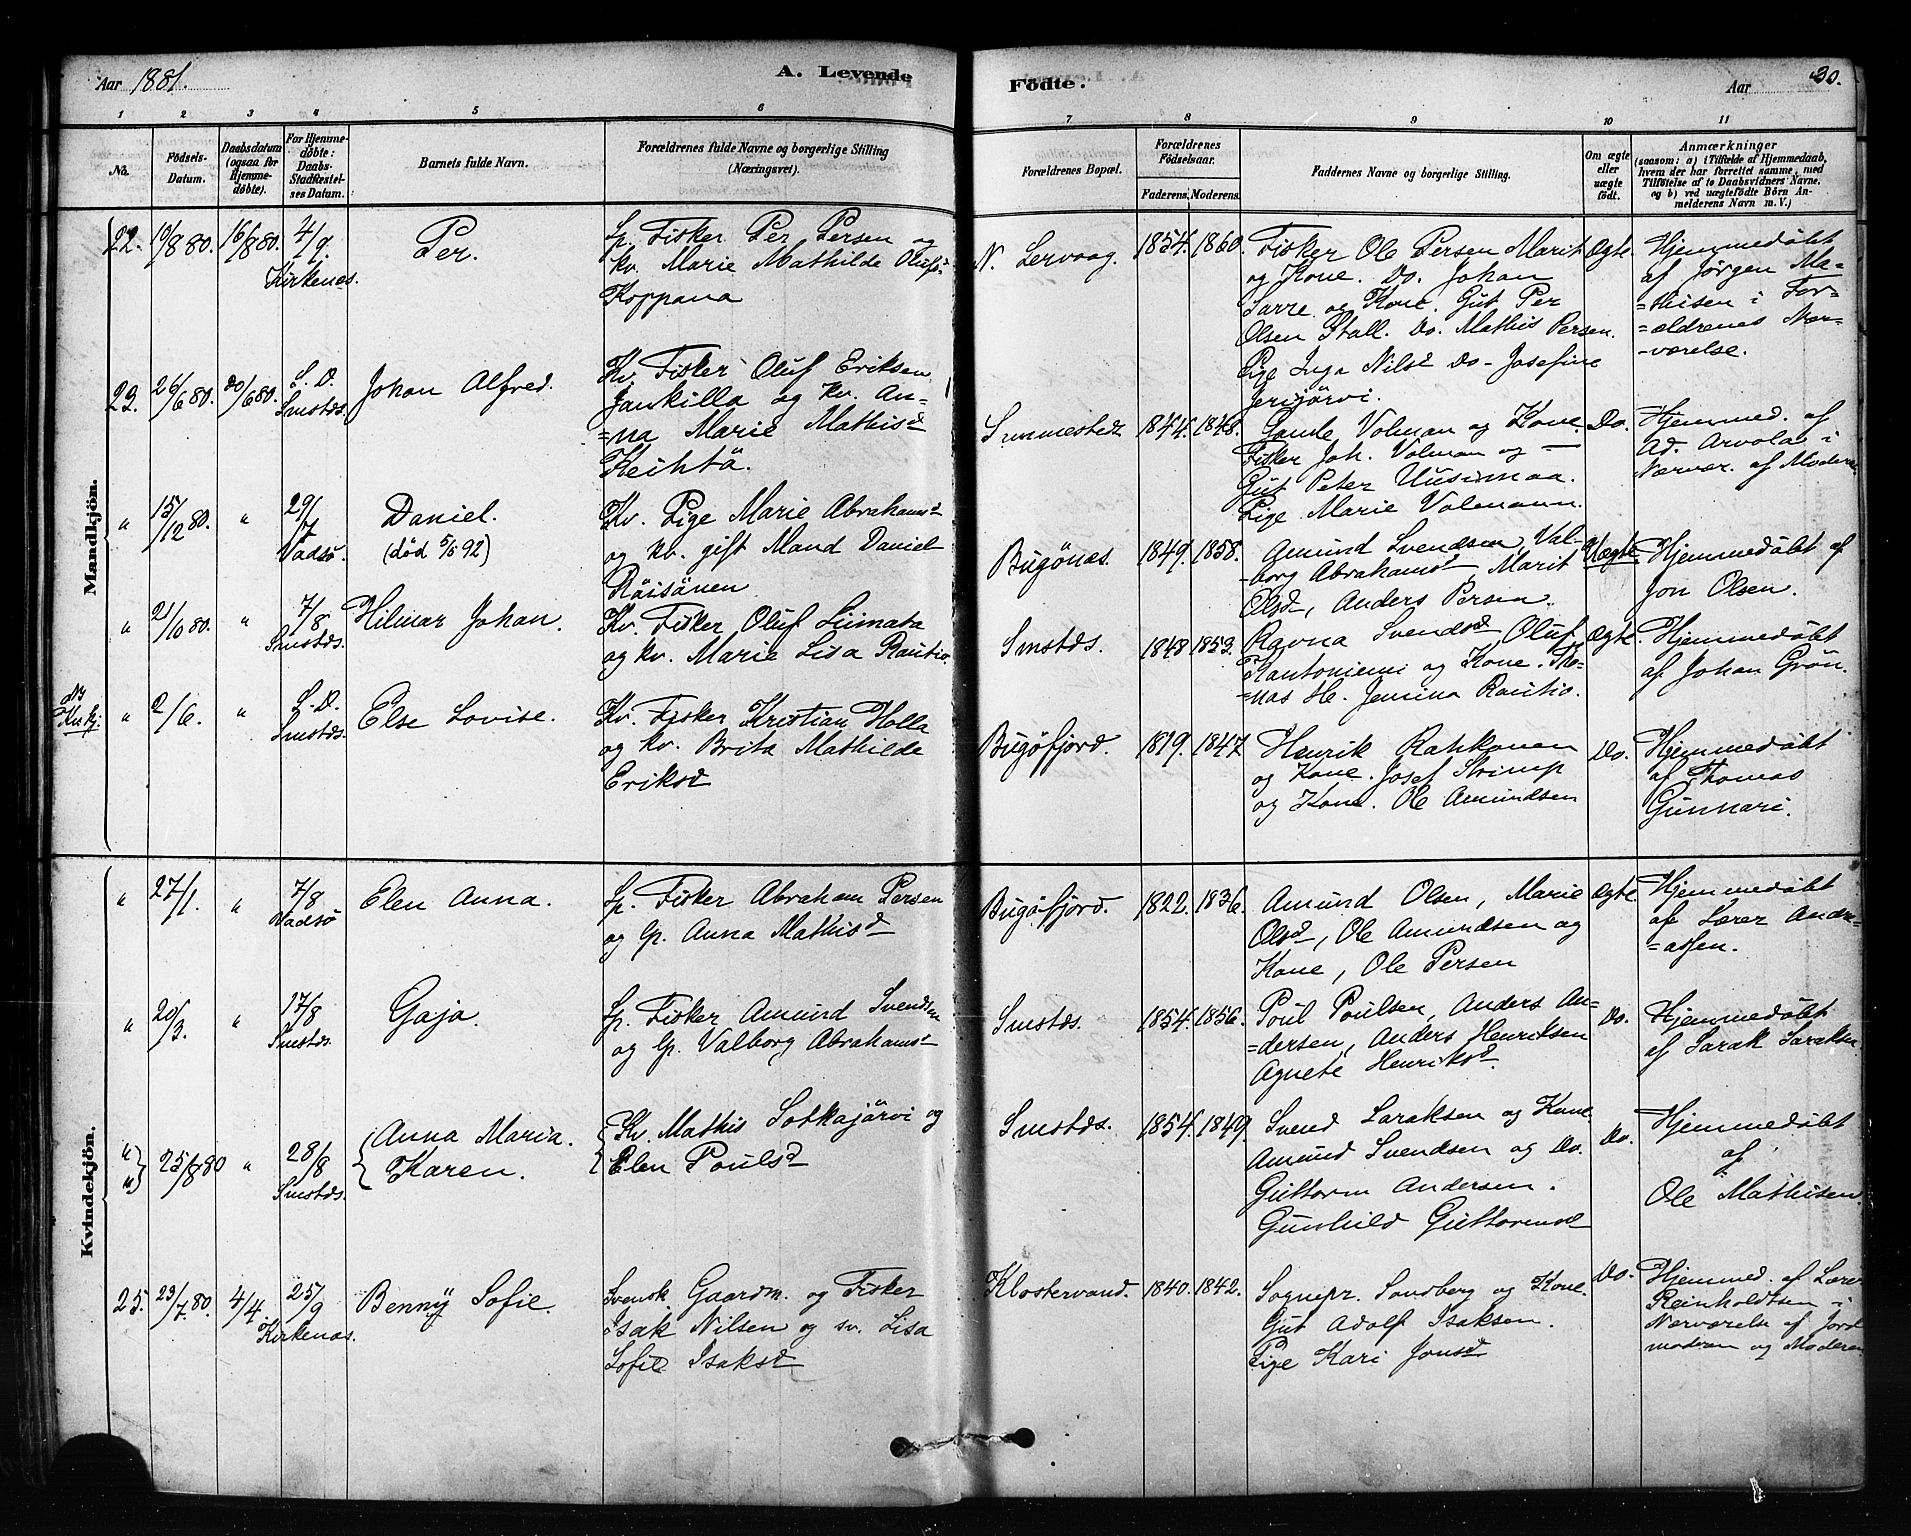 Aar 1881.
A. Levende
Födte.
Aar
30.
1 2 3 4 5 6
7 8 9 10 11
No.
Födsels-
Datum.
Daabsdatum
(ogsaa for
Hjemme-
døbte).
For Hjemme-
døbte:
Daabs-
Stadfæstel-
ses Datum.
Barnets fulde Navn.
Forældrenes fulde Navne og borgerlige Stilling
(Næringsvei).
Forældrenes Bopæl.
Forældrenes
Födselsaar.
Faderens. Moderens.
Faddernes Navne og borgerlige Stilling.
Om ægte
eller
uægte
født.
Anmærkninger
(saasom: a) i Tilfælde af Hjemmedaab,
hvem der har forrettet samme, med
Tilføielse af to Daabsvidners Navne,
og b) ved uægtefödte Börn An-
melderens Navn m. V.)
Mandkjön.
22. 19/8 80. 16/8 80. 4/9.
Kirkenæs.
Per.
Lp. Fisker Per Persen og
kv. Marie Mathilde Olufsd
Koppana
N. Lervaag. 1854. 1860.
Fisker Ole Persen Marit
og Kone. Do. Johan
Sarre og Kone. Gut Per
Olsen Stall. Do. Mathis Persen.
Pige Inga Nilsd Do- Josefine
Jerijärvi.
Ægte.
Hjemmedöbt
af Jörgen Ma-
=thisen i For-
=ældrenes Nær-
-værelse.
23. 26/6 80. 20/6 80. S. D.
Smstds.
Johan Alfred.
Kv. Fisker Oluf Eriksen
Jankilla og kv. An-
=na Marie Mathisd
Keihtä.
Smmesteds 1844. 1848.
Gamle Volman og Kone.
Fisker Joh. Volman og —
Gut Peter Uusimaa.
Pige Marie Volmann.
Do.
Hjemmed. af
Ad. Arvola i
Nærvær. af Moderen
" 15/12 80. " 29/7
Vadsø.
Daniel.
(død 5/5 92)
Kv. Pige Marie Abrahamsd
og kv. gift Mand Daniel
Räisänen
Bugönæs. 1849. 1858.
Amund Svendsen, Val-
-borg Abrahamsd, Marit
Olsd, Anders Persen.
Uægte
Hjemmedöbt af
Jon Olsen.
" 21/10 80. " 7/8
Smstds.
Hilmar Johan.
Kv. Fisker Oluf Liimata
og kv. Marie Lisa Rautio.
Smstds. 1848 1853.
Ravna Svendsd Oluf
Rantoniemi og Kone. Tho-
=mas H. Jemina Rautio.
Ægte
Hjemmedöbt
af Johan Grön.
" 2/6. " S. D.
Smstds.
Else Lovise.
Kv. Fisker Kristian Holla
og kv. Brita Mathilde
Eriksd
Bugöfjord. 1819. 1847
Henrik Rahkonen
og Kone. Josef Strimp
og Kone. Ole Amundsen
Do.
Hjemmedöbt
af Thomas
Gunnari.
Kvindekjön.
" 27/1. " 7/8
Vadsø
Elen Anna.
Lp. Fisker Abraham Persen
og lp. Anna Mathisd
Bugöfjord. 1822. 1836.
Amund Olsen, Marie
Olsd, Ole Amundsen og
Kone, Ole Persen
Ægte.
Hjemmedöbt
af Lærer Andre-
=assen.
" 20/3. " 17/8
Smstds.
Gaja.
Lp. Fisker Amund Svendsen
og lp. Valborg Abrahamsd
Smstds. 1854. 1856.
Poul Poulsen, Anders An-
=dersen, Anders Henriksen
Agnete Henriksd.
Do.
Hjemmedöbt
af Sarak Saraksen
"
" 25/8 80 " 28/8
Smstds.
Anna Maria.
Karen.
Kv. Mathis Sotkajärvi og
Elen Poulsd
Smstds. 1854. 1849
Svend Saraksen og Kone.
Amund Svendsen og Do.
Guttorm Andersen.
Gunhild Guttormsd
Do.
Hjemmedöbt
af
Ole Mathisen
25. 23/7. 80. 4/4 25/9
Kirkenæs.
Benny Sofie.
Svensk Gaardm. og Fisker
Isak Nilsen og sv. Lisa
Sofie Isaksd
Klostervand. 1840. 1842.
Sognepr. Sandberg og Kone.
Gut Adolf Isaksen.
Pige Kari Jonsd
Do.
Hjemmed. af Lærer
Reinholdtsen i
Nærværelse af Jord
moderen og Moderen